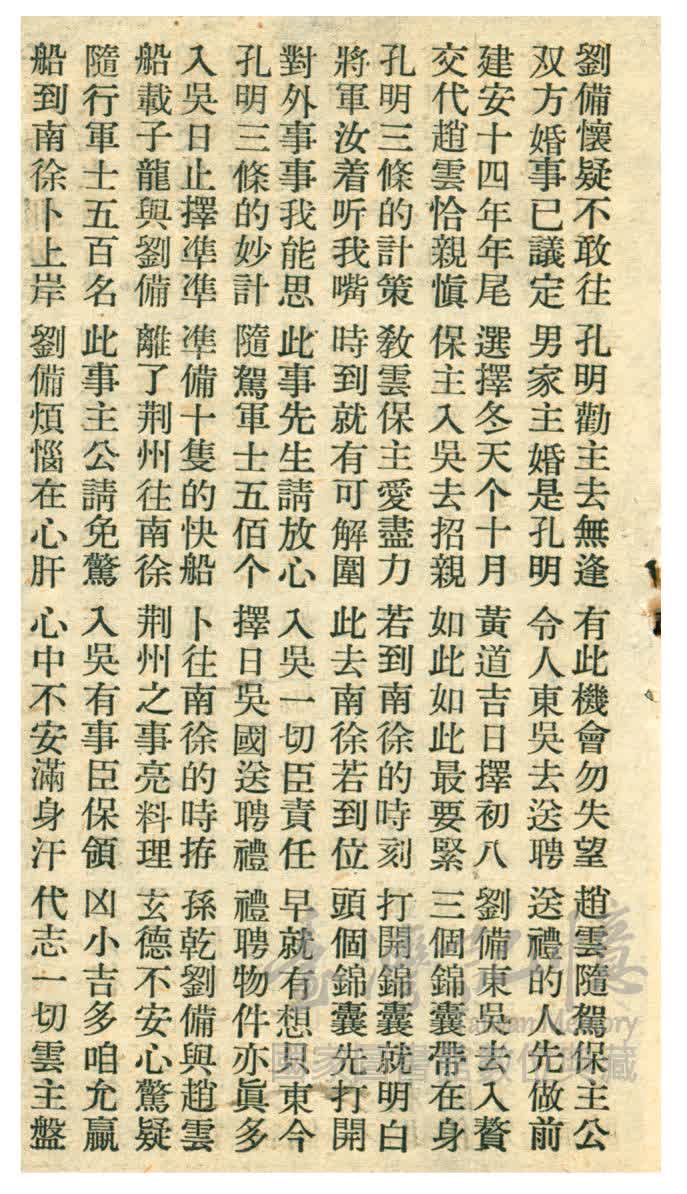 劉備懷疑不敢往 孔明勸主去無逢 有此機會勿失望 趙雲隨駕保主公
双方婚事已議定 男家主婚是孔明 令人東吳去送聘 送禮的人先做前
建安十四年年尾 選擇冬天个十月 黃道吉日擇初八 劉備東吳去入贅
交代趙雲恰親愼 保主入吳去招親 如此如此最要緊 三個錦囊帶在身
孔明三條的計策 敎雲保主愛盡力 若到南徐的時刻 打開錦囊就明白
將軍汝着听我嘴 時到就有可解圍 此去南徐若到位 頭個錦囊先打開
對外事事我能思 此事先生請放心 入吳一切臣責任 早就有想東今
孔明三條的妙計 隨駕軍士五佰个 擇日吳國送聘禮 禮聘物件亦眞多
入吳日止擇凖凖 凖備十隻的快船 卜往南徐的時拵 孫乾劉備與趙雲
船載子龍與劉備 離了荆州往南徐 荆州之事亮料理 玄德不安心驚疑
隨行軍士五百名 此事主公請免驚 入吳有事臣保領 凶小吉多咱允贏
船到南徐卜上岸 劉備煩惱在心肝 心中不安滿身汗 代志一切雲主盤
臺灣記憶
Taiwan Memory
國家圖書館數位典藏